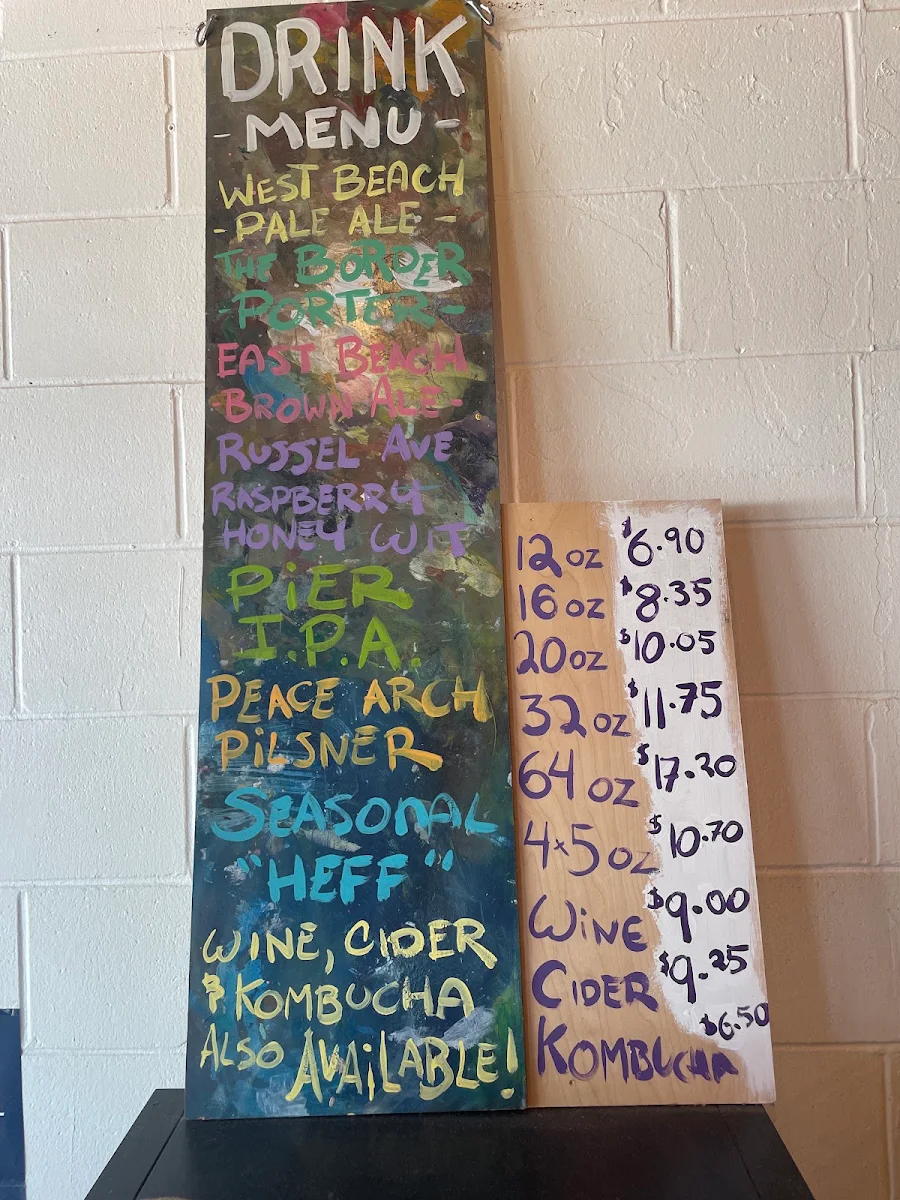 DRINK
- MENU -
WEST BEACH
- PALE ALE -
THE BORDER
- PORTER -
EAST BEACH
- BROWN ALE -
RUSSEL AVE
RASPBERRY
HONEY WIT
PiER
I.P.A.
PEACE ARCH
PiLSNER
SEASONAL
"HEFF"
WINE, CIDER
& KOMBUCHA
ALSO AVAiLABLE!
12 oz $6.90
16 oz $8.35
20 oz $10.05
32 oz $11.75
64 oz $17.20
4x5 oz $10.70
WiNE $9.00
CIDER $9.25
KOMBUCHA $6.50